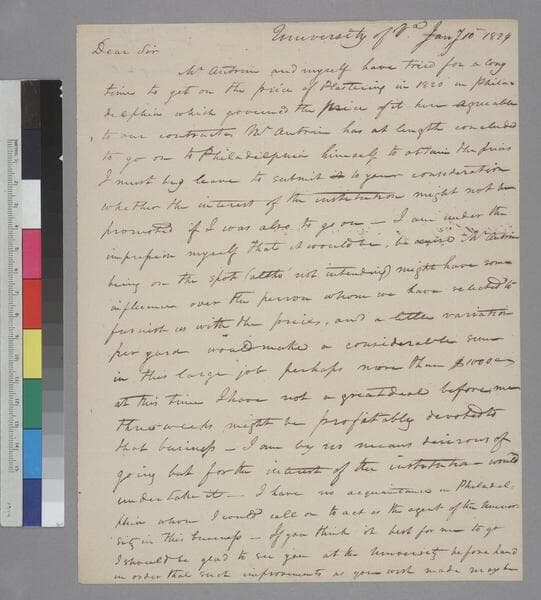 University of Va Jany 10 1829
Dear Sir
Mr Antrim and myself have tried for a long
time to get on the price of Plastering in 1820 in Phila-
delphia which governed the price of it here agreeable
to our contracts Mr Antrim has at length concluded
to go on to Philadelphia himself to obtain the prices
I must beg leave to submit it to your consideration
whether the interest of the institution might not be
promoted if I was also to go on – I am under the
impression myself that it would be, Mr Antrim
being on the spot (altho' not intending) might have some
influence over the person whom we have selected to
furnish us with the prices, and a little variation
per yard would make a considerable sum
in this large job perhaps more than $1000
at this time I have not a great deal before me
three weeks might be profitably devoted to
that business – I am by no means desirous of
going but for the interest of the institution would
undertake it – I have no acquaintance in Philadel-
phia whom I could call on to act as the agent of the Univer-
sity in this business – If you think it best for me to go
I should be glad to see you at the University before hand
in order that such improvements as you wish made may be